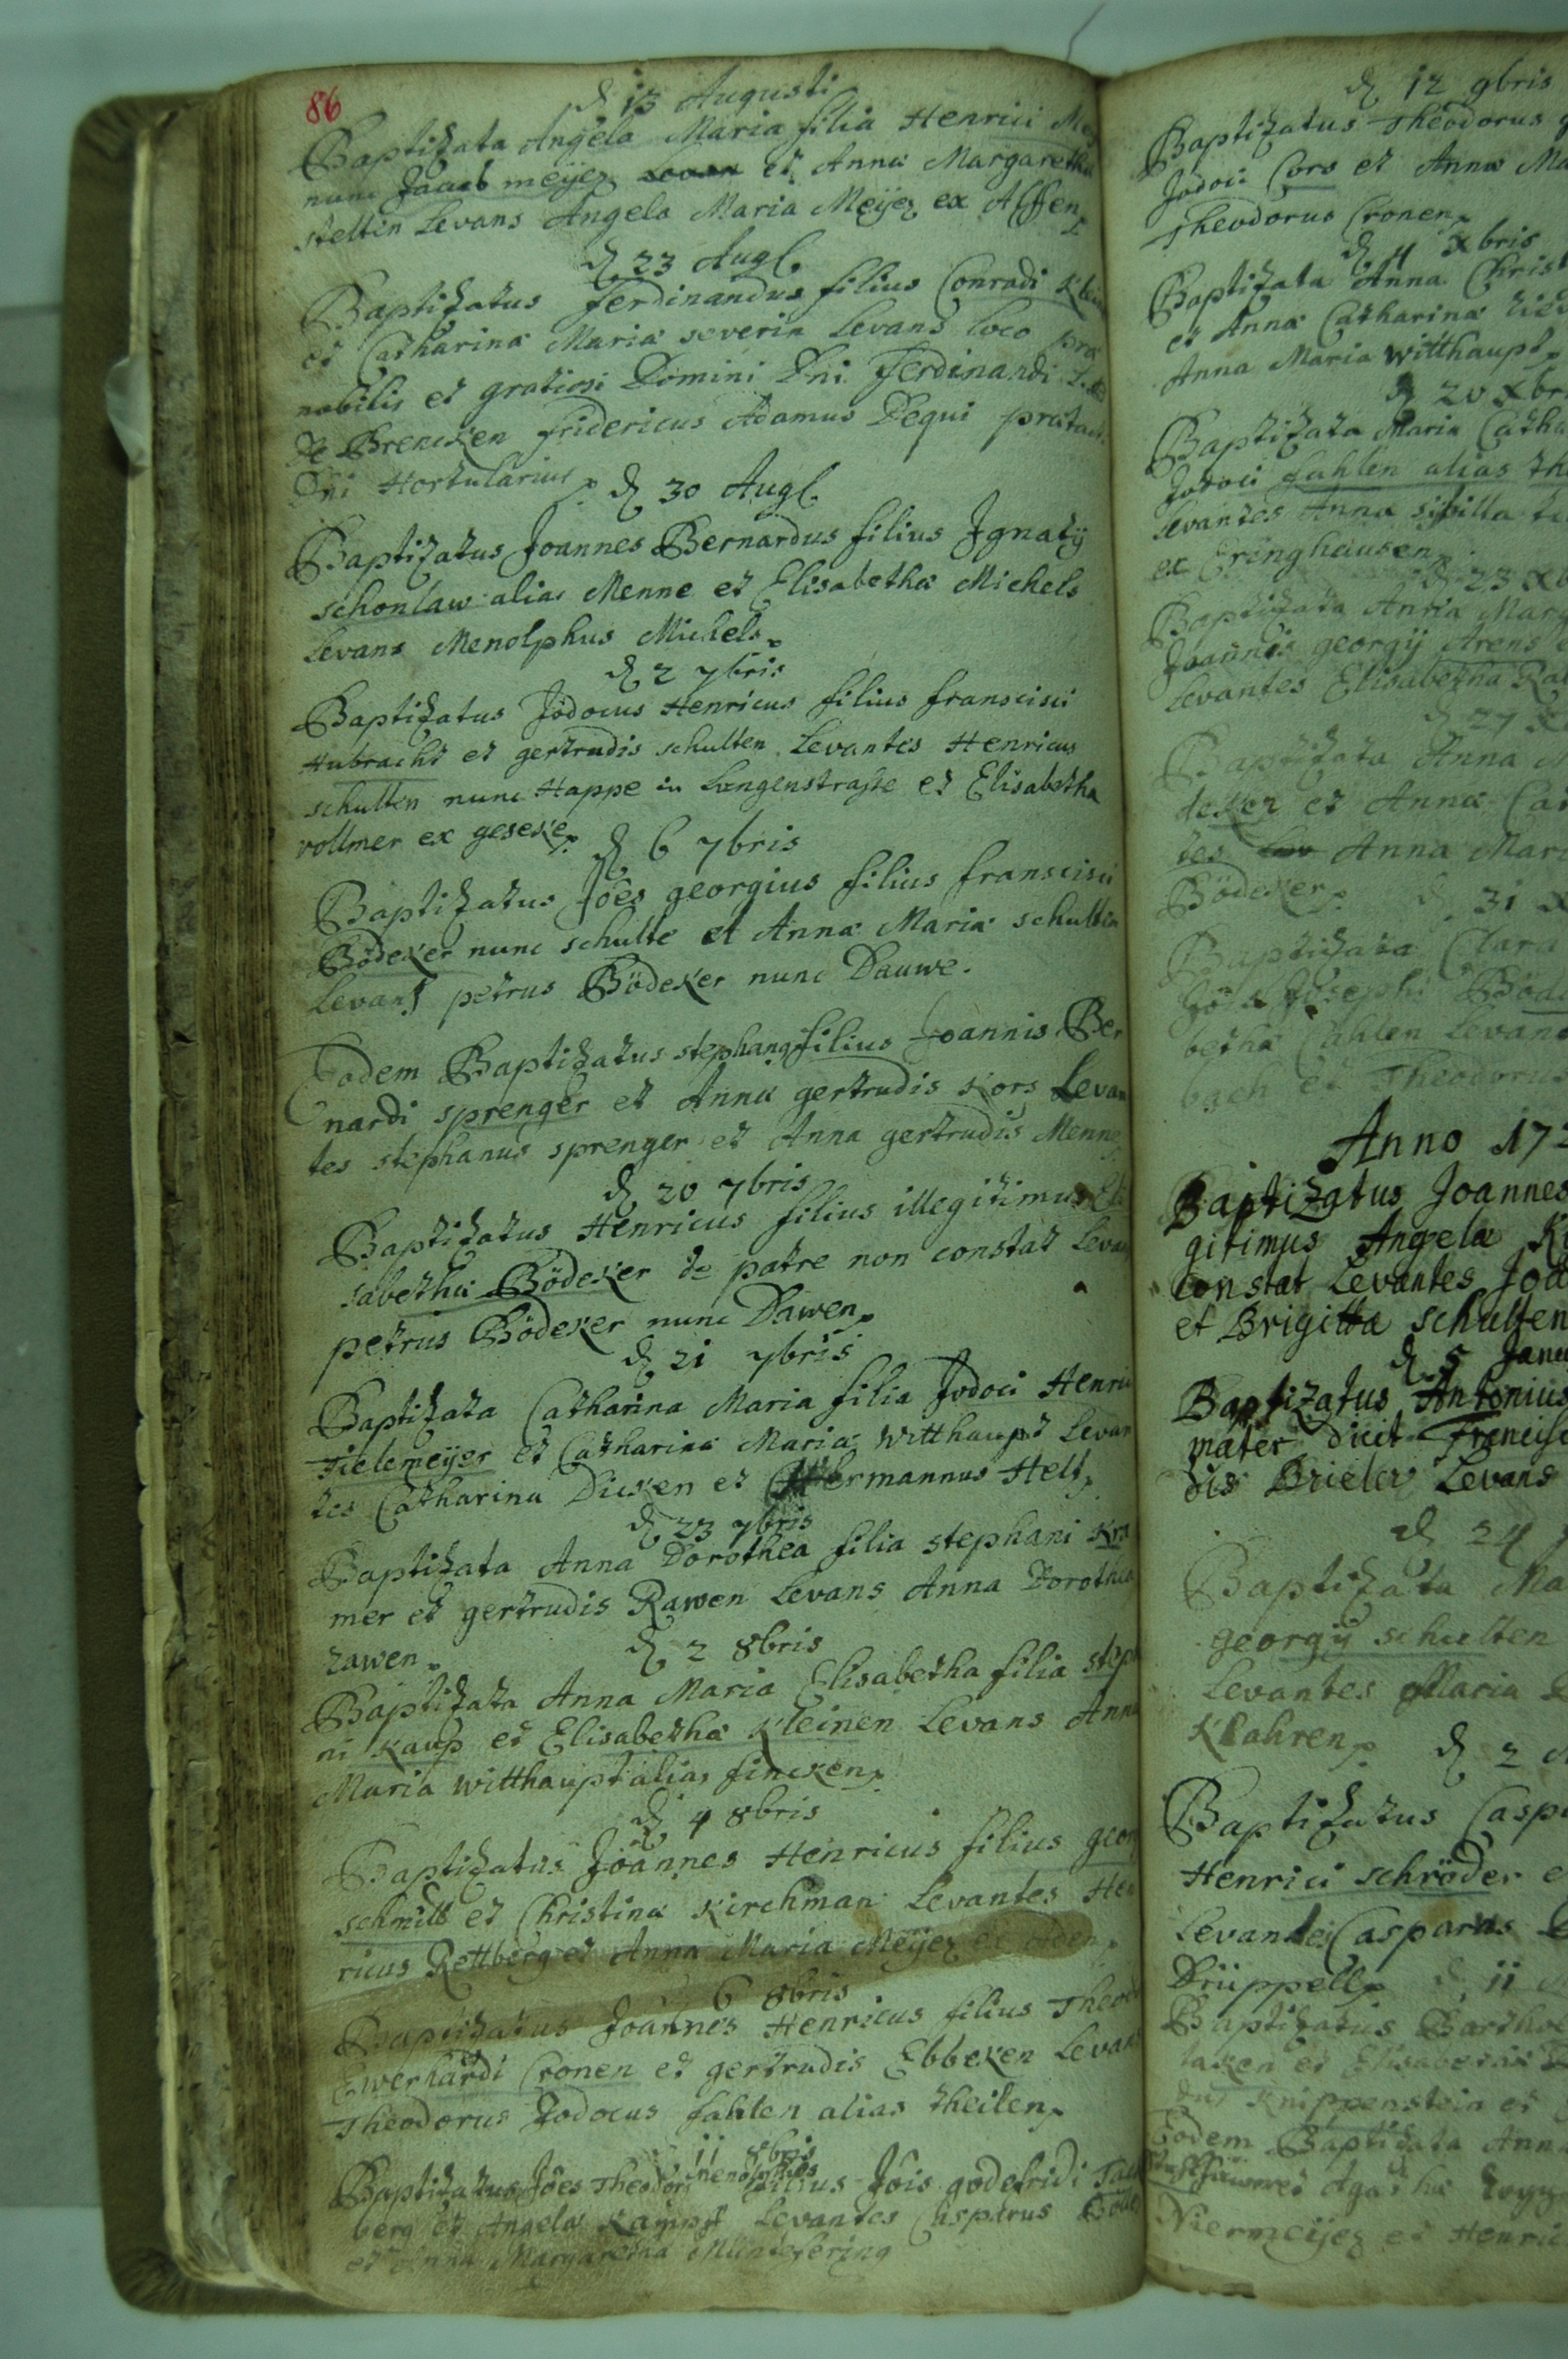 86
d 13 Augusti
Baptizata Angela Maria filia Henrici Mey
nunc Jacob meÿer et Annæ Margarethæ
steltin Levans Angela Maria Meÿer ex Alffen
d 23 Augl.
Baptizatus ferdinandus filius Conradi Klein
et Catharinæ Mariæ severin Levans loco præ
nobilis et gratiosi Domini Dni Ferdinandi L. B.
de Brencken fridericus Adamus Dequi prætacti
Dni Hortularius
d 30 Augl.
Baptizatus Joannes Bernardus filius Ignatÿ
schonlaw alias Menne et Elisabethæ Michels
Levans Menolphus Michels
d 2 7bris
Baptizatus Jodocus Henricus filius franscisci
Hubracht et gertrudis schulten Levantes Henricus
schulten nunc Happe in Langenstraste et Elisabetha
vollmer ex geseke
d 6 7bris
Baptizatus Jöes georgius filius franscisci
Bödeker nunc schulte et Annæ Mariæ schulten
Levans petrus Bödeker nunc Dauwe.
Eodem Baptizatus stephanq filius Joannis Ber
nardi sprenger et Annæ gertrudis Kors Levan
tes stephanus sprenger et Anna gertrudis Menne
d 20 7bris
Baptizatus Henricus filius illegitimus Eli
sabethæ Bödeker de patre non constat Levans
petrus Bödeker nunc Dawen
d 21 7bris
Baptizata Catharina Maria filia Jodoci Henrici
Tielemeÿer et Catharinæ Mariæ Witthaupt Levan
tes Catharina Dicken et Hermannus Helt
d 23 7bris
Baptizata Anna Dorothea filia stephani Kra
mer et gertrudis Rawen Levans Anna Dorothea
rawen
d 2 8bris
Baptizata Anna Maria Elisabetha filia steph
ni Kaup et Elisabethæ Kleinen Levans Anna
Maria Witthaupt alias fincken
d 4 8bris
Baptizatus Joannes Henricus filius geor
schmitt et Christinæ Kirchman Levantes Hen
ricus Rettberg et Anna Maria Meÿer
6 8bris
Baptizatus Joannes Henricus filius Theod
Ewerhardi Cronen et gertrudis Ebbeken Levans
Theodorus Jodocus fahlen alias theilen
11 8bris
Baptizatus Jöes Theodor menolphus filius Jöis godefridi Tal
berg et Angelæ Kamp Levantes Casparus
et Anna Margaretha Müntefering
d 12 9bris
Baptizatus Theodorus
Jodoci Cors et Annæ Ma
Theodorus Cronen
d 4 Xbris
Baptizata Anna Christ
et Annæ Catharinæ
Anna Maria Witthaupt
d 20 Xbr
Baptizata Maria Catha
Jodoci fahlen alias the
Levantes Anna sibilla
ex Eringhausen
d 23 Xb
Baptizata Anna Marg
Joannis georgÿ Arens e
Levantes Elisabetha Ra
d 27 X
Baptizata Anna M
deker et Annæ Cat
tes Anna Mar
Bödeker
d 31 X
Baptizata Clara
Josephi Böde
bethæ Cahlen Levant
bach et Theodorus
Anno 17
Baptizatus Joannes
gitimus Angelæ
constat Levantes Joa
et Brigitta schulten
d 5 Janu
Baptizatus Antonius
mater dicit Francisc
dis Brieler Levans
d 24
Baptizata Ma
georgÿ schulten
Levantes Maria
Klahren
d 2
Baptizatus Caspa
Henrici schröder e
Levantes Casparus
Drüppell
d 11
Baptizatus Bartho
et Elisabethæ
Knippenstein et
Eodem Baptizata Ann
et Agathæ
Niermeÿer et Henric